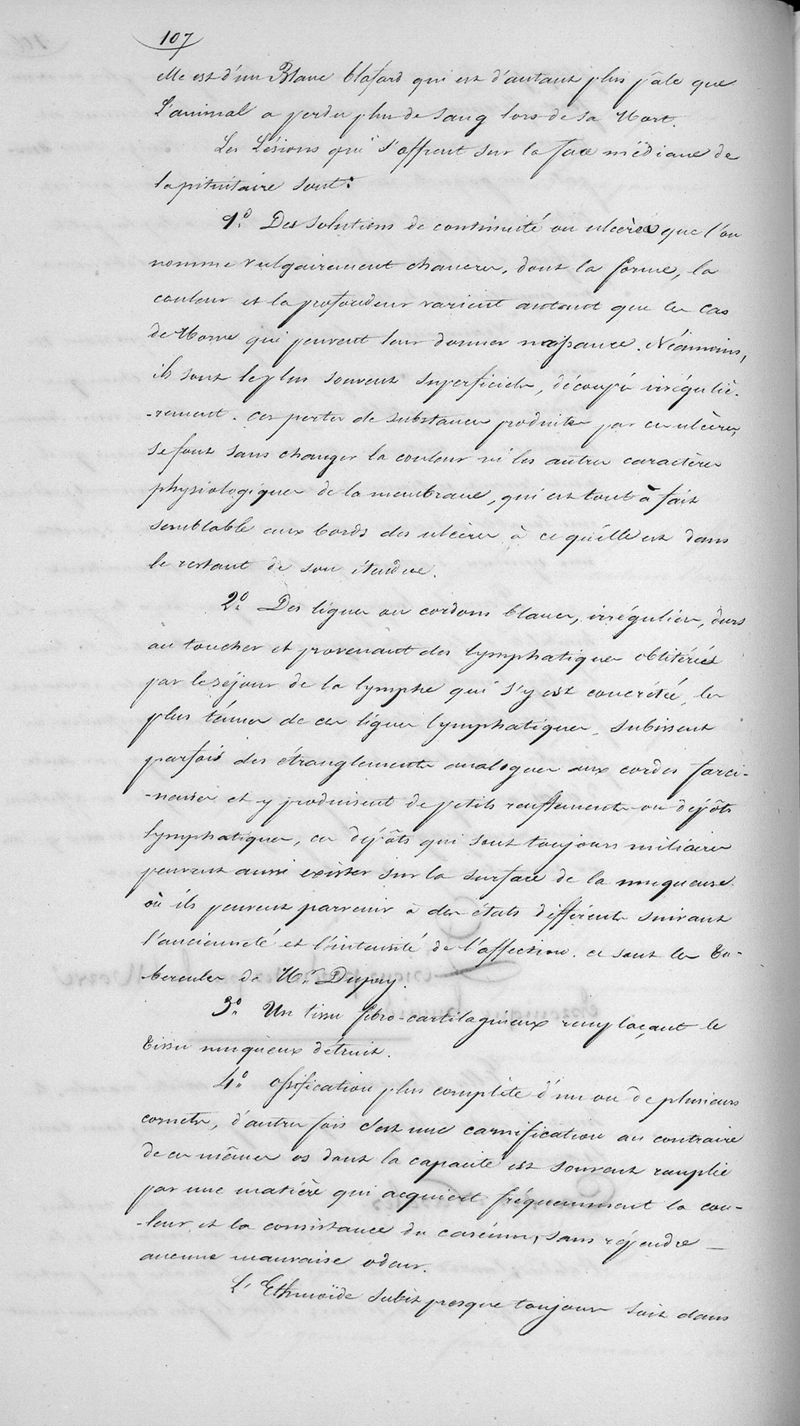 107
elle est d'un Blanc blafard qui est d'autant plus pale que
L'animal a perdu plus de sang lors de sa Mort.
Les Lésions qui s'offrent sur la face médiane de
la pituitaire sont:
1.° Des solutions de continuité ou ulcères que l'on
nomme vulgairement chancres, dont la forme, la
couleur et la profondeur varient autant que les cas
de Morve qui peuvent leur donner naissance. Néanmoins,
ils sont le plus souvent superficiels, découpés irréguliè-
-rement. Ces pertes de substances produites par ces ulcères,
se font sans changer la couleur ni les autres caractères
physiologiques de la membrane, qui est tout à fait
semblable aux bords des ulcères à ce qu'elle est dans
le restant de son étendue.
2.° Des lignes ou cordons blancs, irréguliers, durs
au toucher et provenant des lymphatiques oblitérés
par le séjour de la lymphe qui s'y est concrétée, les
plus ténues de ces lignes lymphatiques, subissent
parfois des étranglements analogues aux cordes farci-
-neuses et y produisent de petits renflements ou dépôts
lymphatiques, ces dépôts qui sont toujours miliaires
peuvent aussi exister sur la surface de la muqueuse
où ils peuvent parvenir à des états différents suivant
l'ancienneté et l'intensité de l'affection. ce sont les Tu-
bercules de Mr Dupuy.
3.° Un tissu fibro-cartilagineux remplaçant le
tissu muqueux détruit.
4.° Ossification plus complète d'un ou de plusieurs
cornets, d'autres fois c'est une carnification au contraire
de ces mêmes os dont la capacité est souvent remplie
par une matière qui acquiert fréquemment la cou-
-leur et la consistance du caséum, sans répendre
aucune mauvaise odeur.
L'Ethmoïde subit presque toujours soit dans